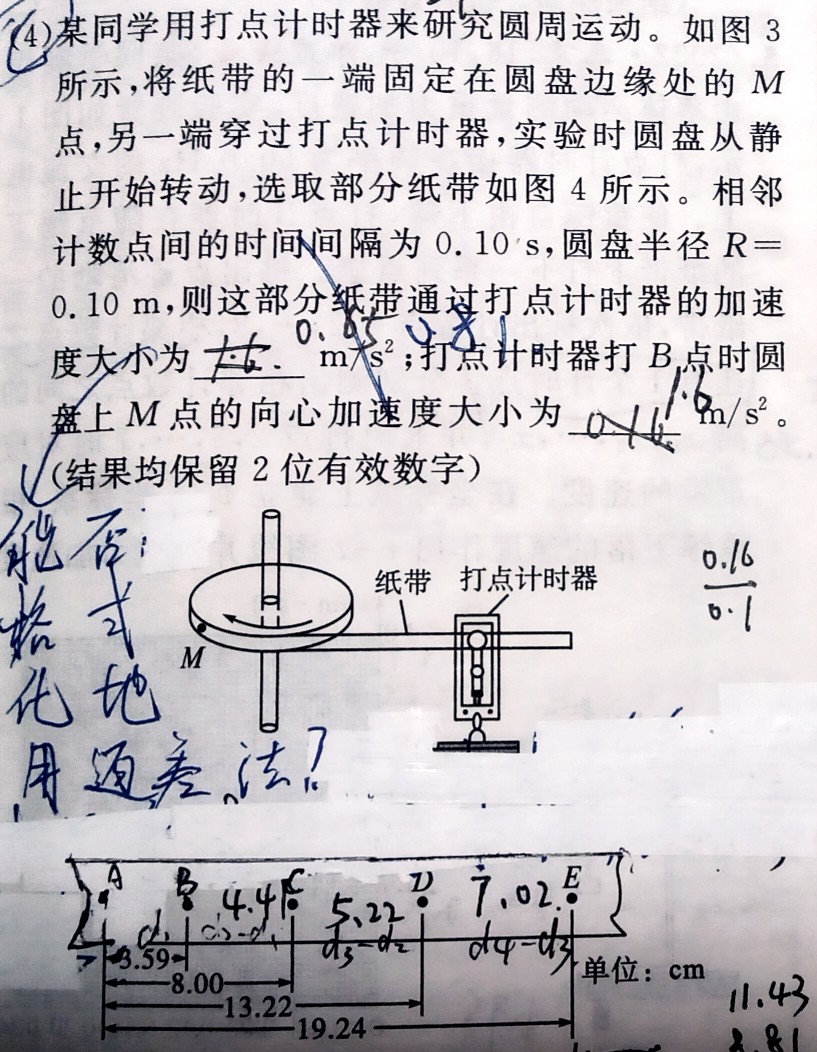 (4)某同学用打点计时器来研究圆周运动。如图 3
所示,将纸带的一端固定在圆盘边缘处的 M
点,另一端穿过打点计时器,实验时圆盘从静
止开始转动,选取部分纸带如图 4 所示。相邻
计数点间的时间间隔为 0.10 s,圆盘半径 R=
0.10 m,则这部分纸带通过打点计时器的加速
0.65 0.81
度大小为 1.6. m/s²;打点计时器打 B 点时圆
1.6
盘上 M 点的向心加速度大小为 0.16 m/s²。
(结果均保留 2 位有效数字)
能否:
格式
化地
用逐差法?
0.16
0.1
纸带 打点计时器
M
A B C D E
4.41 5.22 7.02
d₁ d₂-d₁ d₃-d₂ d₄-d₃
3.59
8.00
13.22
19.24
单位: cm
11.43
8.81